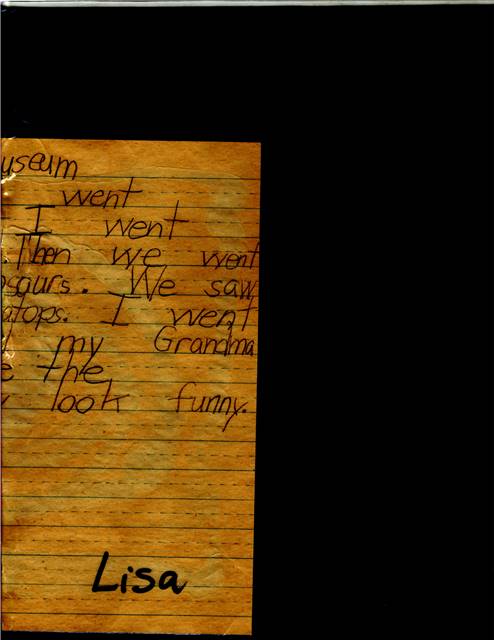 useum
went
I went
. Then we went
osaurs. We saw
atops. I went
my Grandma
e the
look funny.
Lisa